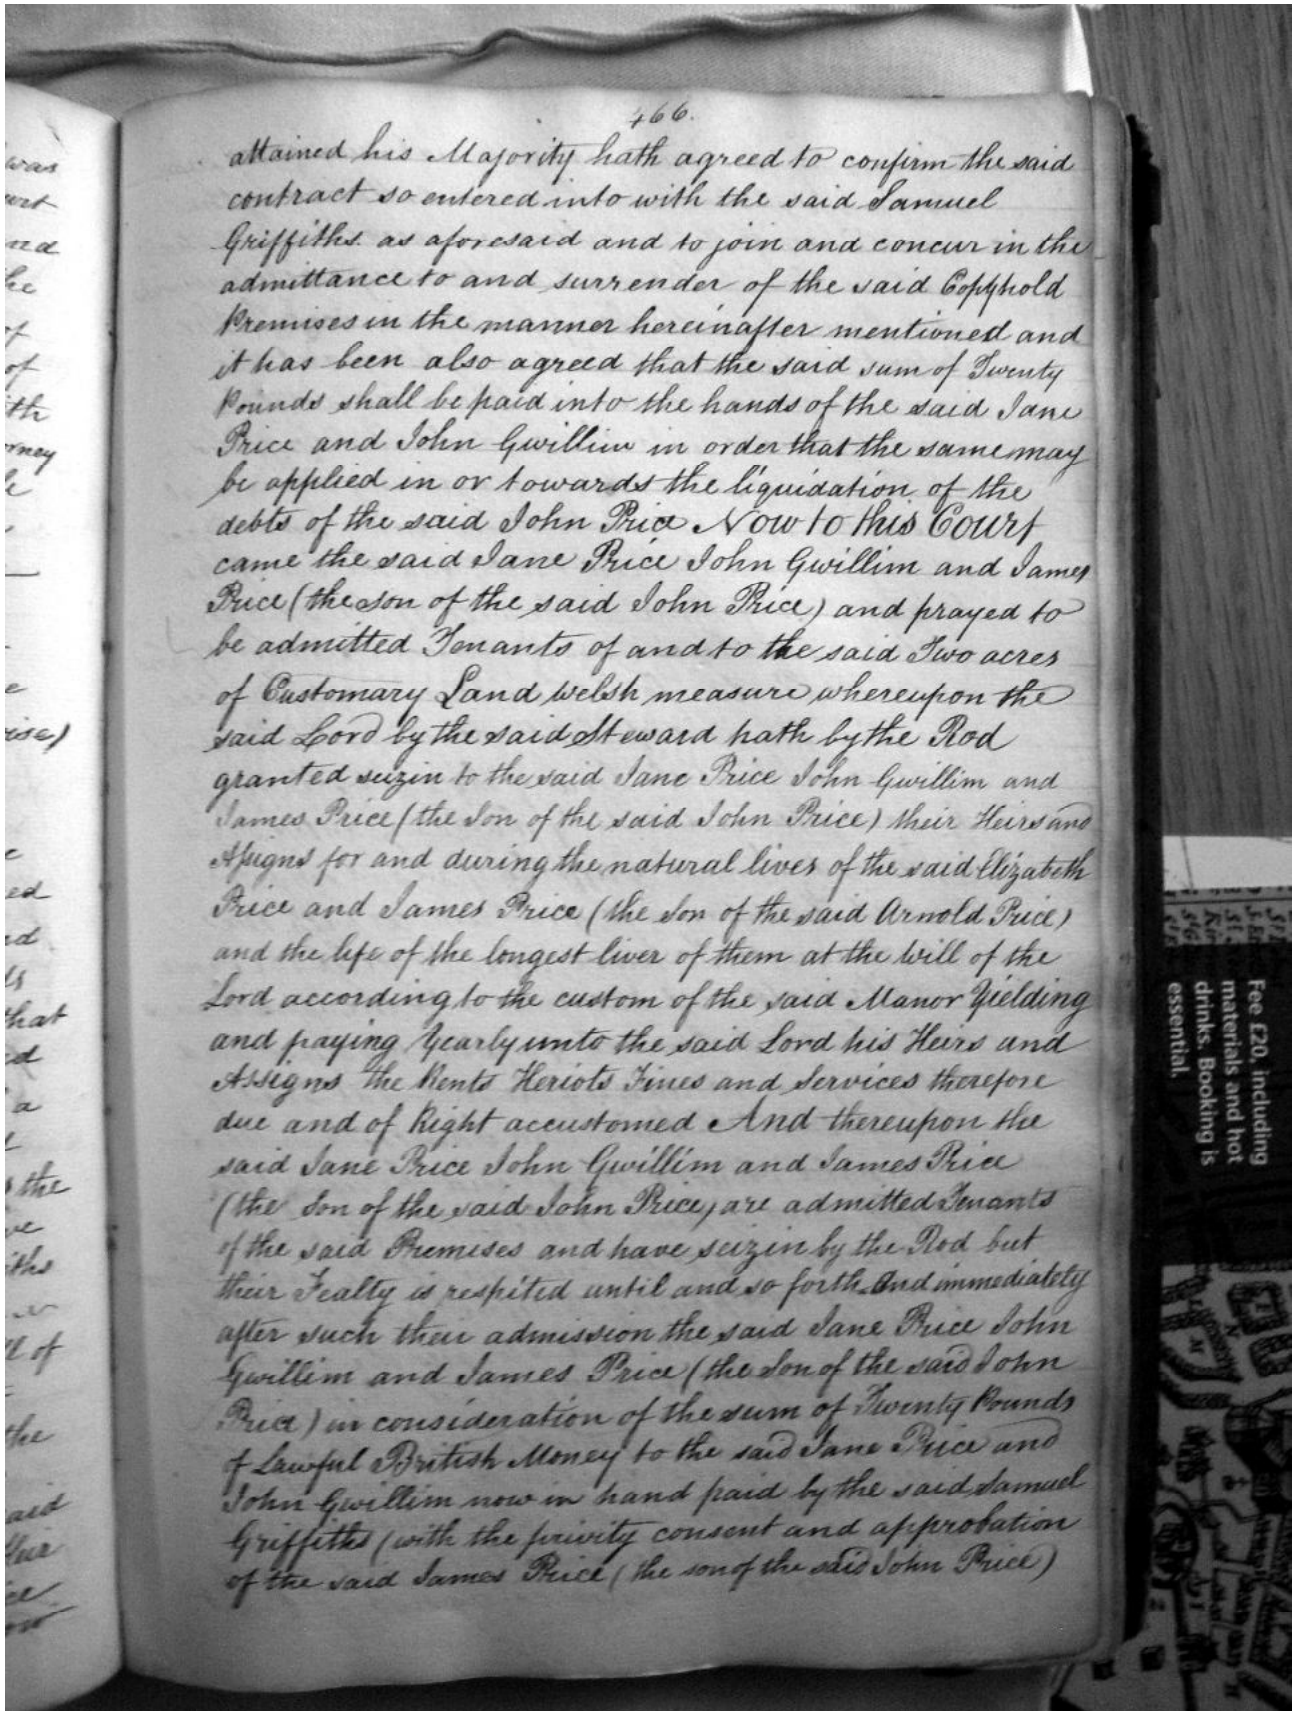 466.
attained his Majority hath agreed to confirm the said
contract so entered into with the said Samuel
Griffiths as aforesaid and to join and concur in the
admittance to and surrender of the said Copyhold
Premises in the manner hereinafter mentioned and
it has been also agreed that the said sum of Twenty
Pounds shall be paid into the hands of the said Jane
Price and John Gwillim in order that the same may
be applied in or towards the liquidation of the
debts of the said John Price Now to this Court
came the said Jane Price John Gwillim and James
Price (the son of the said John Price) and prayed to
be admitted Tenants of and to the said Two acres
of Customary Land Welsh measure whereupon the
said Lord by the said Steward hath by the Rod
granted seizin to the said Jane Price John Gwillim and
James Price (the Son of the said John Price) their Heirs and
Assigns for and during the natural lives of the said Elizabeth
Price and James Price (the Son of the said Arnold Price)
and the life of the longest liver of them at the Will of the
Lord according to the custom of the said Manor Yielding
and paying Yearly unto the said Lord his Heirs and
Assigns the Rents Heriots Fines and Services therefore
due and of Right accustomed And thereupon the
said Jane Price John Gwillim and James Price
(the Son of the said John Price) are admitted Tenants
of the said Premises and have seizin by the Rod but
their Fealty is respited until and so forth And immediately
after such their admission the said Jane Price John
Gwillim and James Price (the Son of the said John
Price) in consideration of the sum of Twenty Pounds
of Lawful British Money to the said Jane Price and
John Gwillim now in hand paid by the said Samuel
Griffiths (with the privity consent and approbation
of the said James Price (the son of the said John Price)
was
ned
he
of
of
ith
rney
ed
that
a
the
iths
of
the
Fee £20, including
materials and hot
drinks. Booking is
essential.